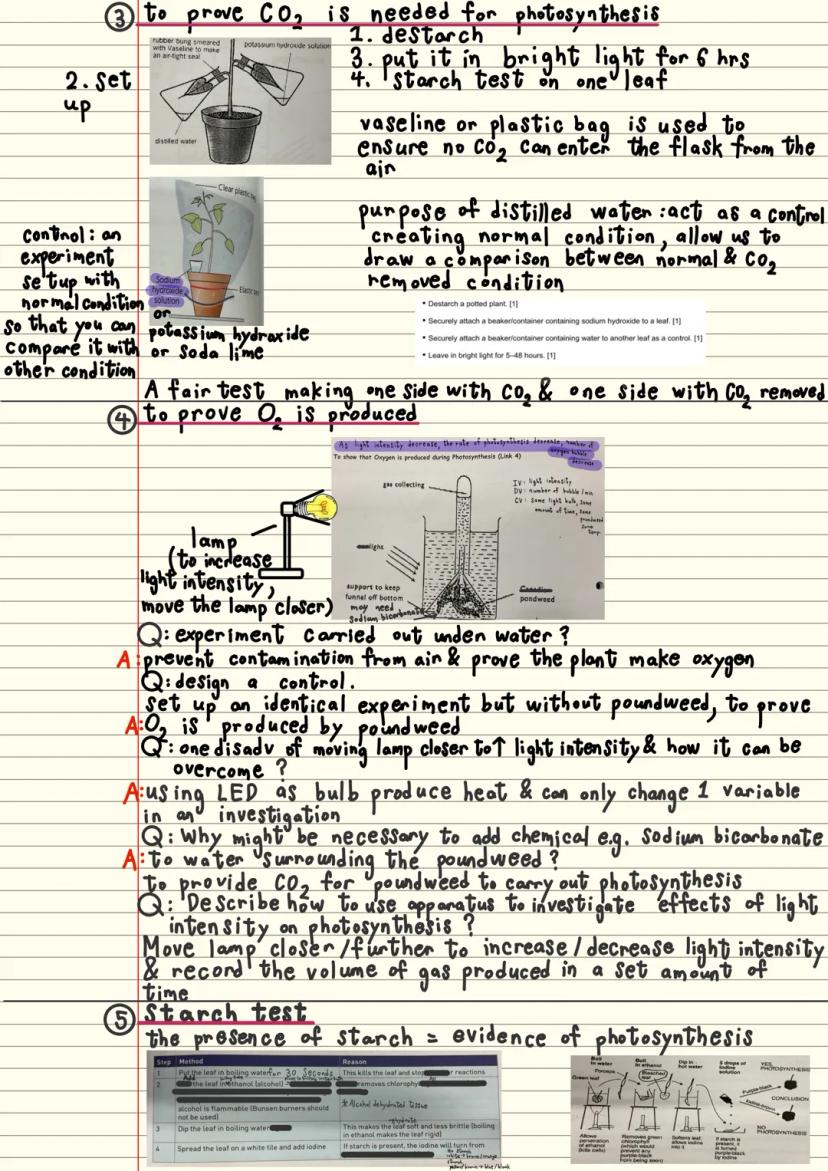 ③ to prove CO₂ is needed for photosynthesis
1. destarch
rubber bung smeared with Vaseline to make an air-tight seal
potassium hydroxide solution
distilled water
2. set up
3. put it in bright light for 6 hrs
4. starch test on one leaf
vaseline or plastic bag is used to
ensure no CO₂ can enter the flask from the
air
Clear plastic bag
Sodium hydroxide solution
Elastic band
or
potassium hydroxide
or soda lime
purpose of distilled water : act as a control
creating normal condition, allow us to
draw a comparison between normal & CO₂
removed condition
control : an
experiment
setup with
normal condition
so that you can
compare it with
other condition
• Destarch a potted plant. [1]
• Securely attach a beaker/container containing sodium hydroxide to a leaf. [1]
• Securely attach a beaker/container containing water to another leaf as a control. [1]
• Leave in bright light for 5–48 hours. [1]
A fair test making one side with CO₂ & one side with CO₂ removed
④ to prove O₂ is produced
As light intensity decrease, the rate of photosynthesis decrease, number of
oxygen bubble
decrease
To show that Oxygen is produced during Photosynthesis (Link 4)
gas collecting
IV : light intensity
DV : number of bubble / min
CV : Same light bulb, same
amount of time, same
poundweed
same
temp.
light
support to keep
funnel off bottom
may need
Sodium bicarbonate
pondweed
lamp
(to increase
light intensity,
move the lamp closer)
Q : experiment carried out under water ?
A: prevent contamination from air & prove the plant make oxygen
Q : design a control.
set up an identical experiment but without poundweed, to prove
A: O₂ is produced by poundweed
Q : one disadv of moving lamp closer to ↑ light intensity & how it can be
overcome ?
A: using LED as bulb produce heat & can only change 1 variable
in an investigation
Q : Why might be necessary to add chemical e.g. sodium bicarbonate
A: to water surrounding the poundweed ?
to provide CO₂ for poundweed to carry out photosynthesis
Q : Describe how to use apparatus to investigate effects of light
intensity on photosynthesis ?
Move lamp closer / further to increase / decrease light intensity
& record the volume of gas produced in a set amount of
time
⑤ Starch test
the presence of starch = evidence of photosynthesis
Step Method Reason
1 Put the leaf in boiling water for 30 seconds This kills the leaf and stops reactions
2 Add the leaf in ethanol (alcohol) removes chlorophyll
alcohol is flammable (Bunsen burners should not be used)
* Alcohol dehydrated tissue
rehydrate
3 Dip the leaf in boiling water This makes the leaf soft and less brittle (boiling in ethanol makes the leaf rigid)
4 Spread the leaf on a white tile and add iodine If starch is present, the iodine will turn from
Boil in water
Boil in ethanol
Dip in hot water
5 drops of iodine solution
YES, PHOTOSYNTHESIS
Forceps
Green leaf
Bleached leaf
Purple-black
CONCLUSION
Iodine-brown
NO PHOTOSYNTHESIS
Allows penetration of ethanol (kills cells)
Removes green chlorophyll (which would prevent any purple-black from being seen)
Softens leaf, allows iodine into it
If starch is present, it is turned purple-black by iodine